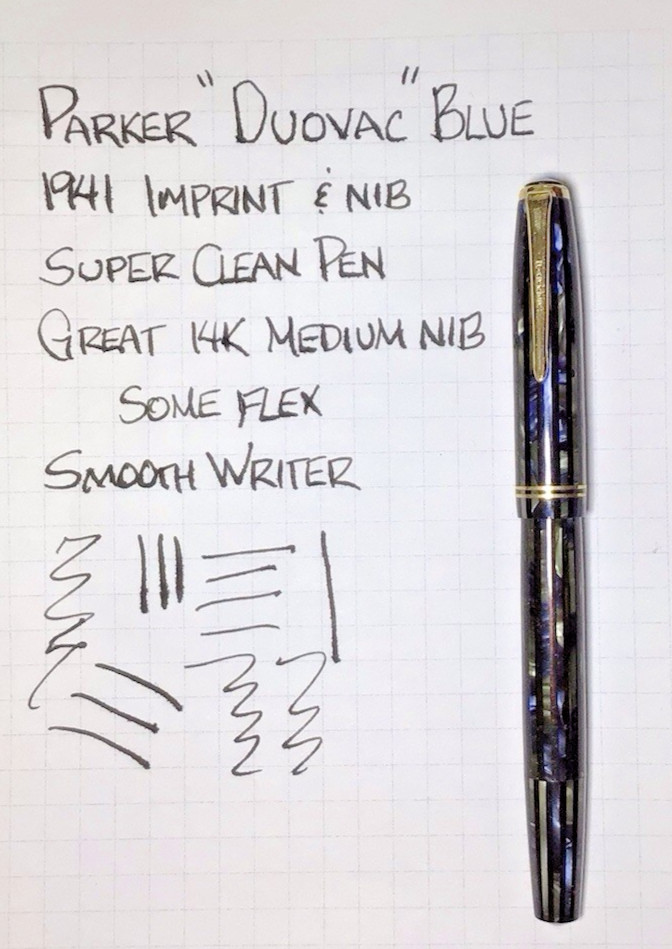 PARKER "DUOVAC" BLUE
1941 IMPRINT & NIB
SUPER CLEAN PEN
GREAT 14K MEDIUM NIB
SOME FLEX
SMOOTH WRITER